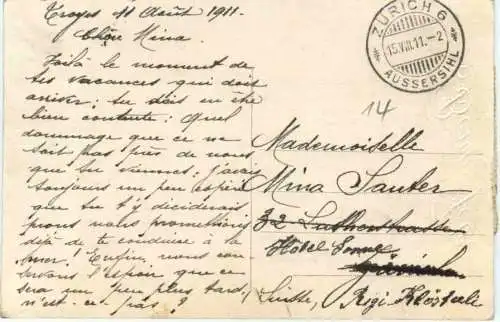 Troyes 11 Août 1911.
Chère Mina.
Voilà le moment de
tes vacances qui doit
arriver; tu dois en être
bien contente: Quel
dommage que ce ne
soit pas près de nous
que tu viennes; j'avais
toujours un peu espéré
que tu t'y déciderais
nous promettions
déjà de te conduire à la
mer! Enfin, nous con-
servons l'espoir que ce
sera un peu plus tard,
n'est-ce pas?
ZÜRICH 6
15.VIII.11.-2
AUSSERSIHL
14
Mademoiselle
Mina Sauter
32 Lutherstrasse
Hôtel
Suisse, Rigi-Klösterli